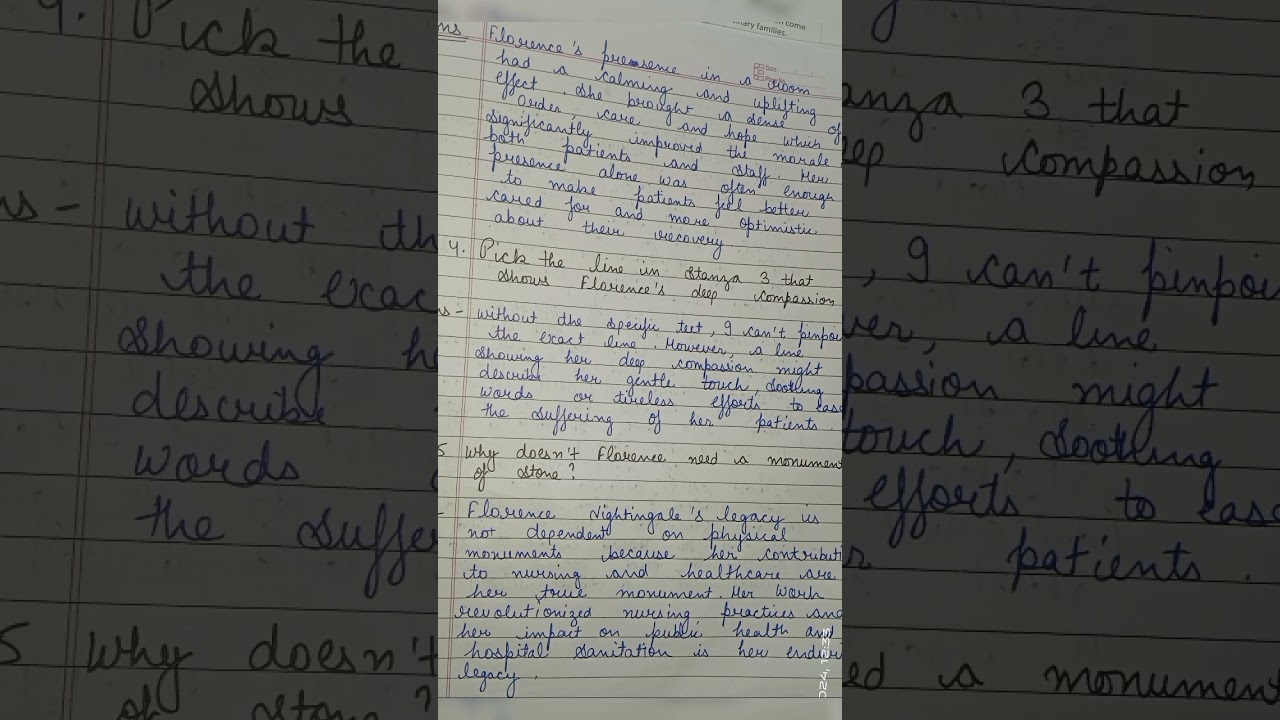 come
families.
Florence's presence in a room
had a calming and uplifting
effect. She brought a sense of
Order, care and hope which
significantly improved the morale
both patients and staff. Her
presence alone was often enough
to make patients feel better
cared for and more optimistic
about their recovery.
4. Pick the line in Stanza 3 that
shows Florence's deep compassion
without the specific text, I can't pinpoi
the exact line. However, a line
showing her deep compassion might
describe her gentle touch, soothing
words or tireless efforts to ease
the suffering of her patients.
5 Why doesn't Florence need a monumen
of stone?
Florence Nightingale's legacy is
not dependent on physical
monuments because her contributi
to nursing and healthcare are
her true monument. Her work
revolutionized nursing practices and
her impact on public health and
hospital sanitation is her enduri
legacy.